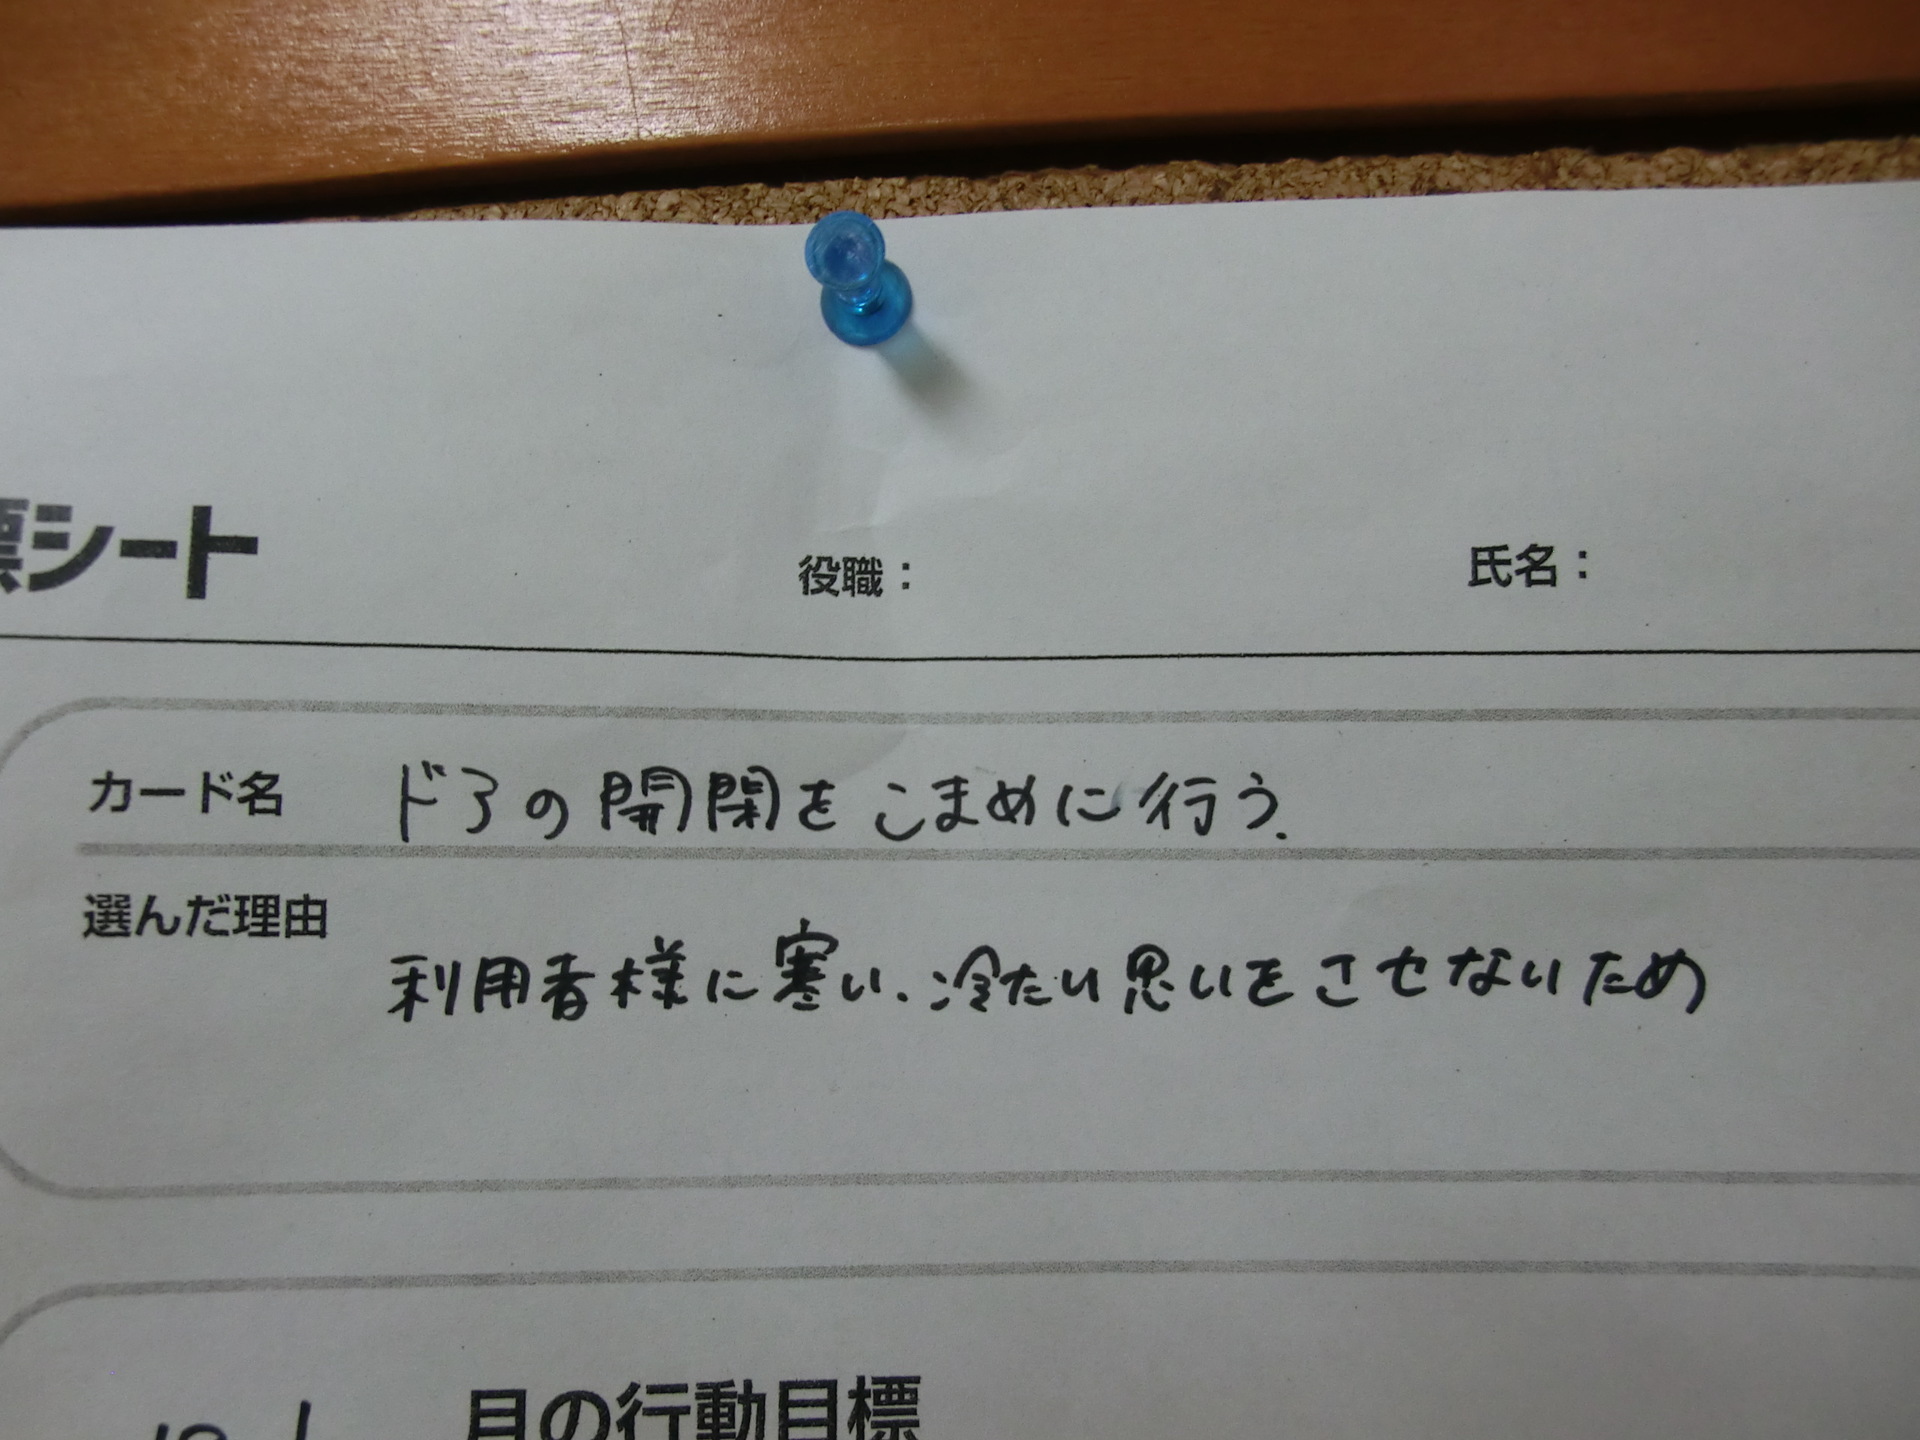 標シート
役職：
氏名：
カード名 ドアの開閉をこまめに行う.
選んだ理由
利用者様に寒い、冷たい思いをさせないため
月の行動目標